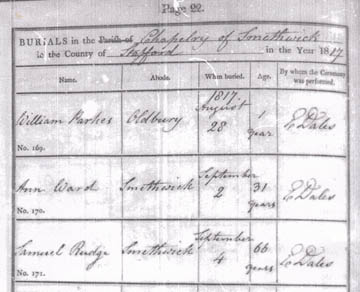 Page 22.
BURIALS in the Parish of Chapelry of Smethwick
in the County of Stafford in the Year 1817
Name. Abode. When buried. Age. By whom the Ceremony was performed.
1817.
William Parkes Oldbury August 28 1 year E Dales
No. 169.
Ann Ward Smethwick September 2 31 years E Dales
No. 170.
Samuel Rudge Smethwick September 4 66 years E Dales
No. 171.